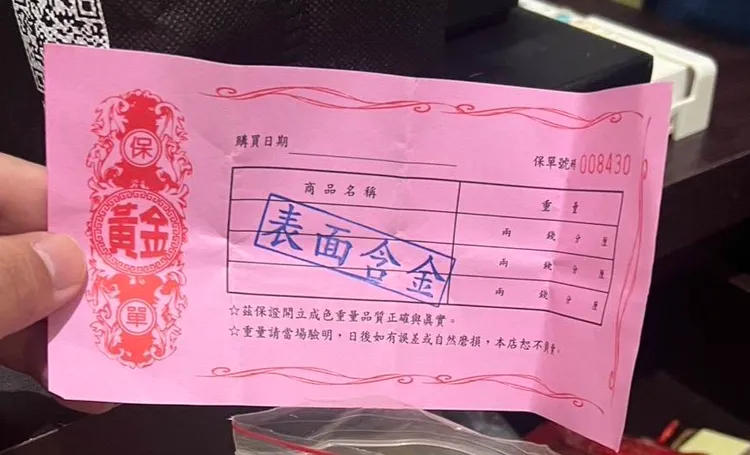 保
黃金
單
購買日期
保單號碼 008430
商品名稱 重量
兩 錢 分 厘
兩 錢 分 厘
兩 錢 分 厘
表面含金
☆茲保證開立成色重量品質正確與真實。
☆重量請當場驗明,日後如有誤差或自然磨損,本店恕不負責。